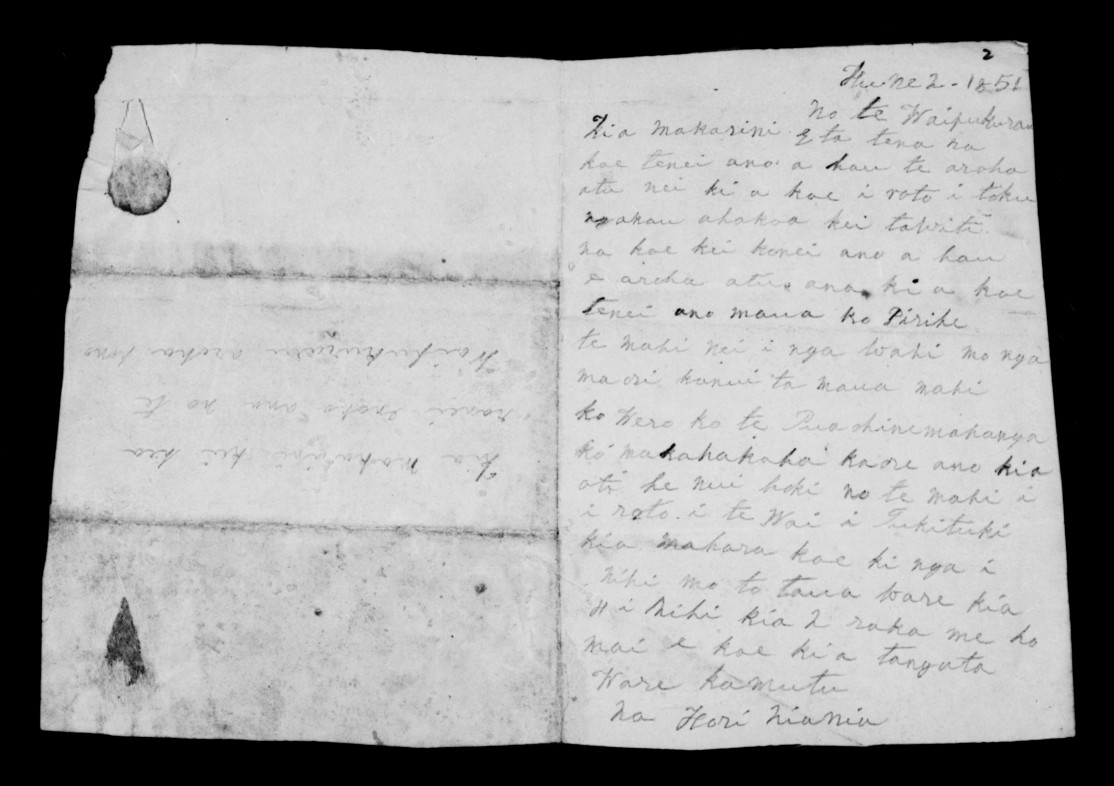 2
Hune 2 - 1851
No te Waipukurau
Kia makarini E ta tena ra
koe tenei ano a hau te aroha
atu nei ki a koe i roto i toku
ngakau ahakoa kei tawiti
na koe kei konei ano a hau
e aroha atu ana ki a koe
tenei ano maua ko Pirihe
te mahi nei i nga wahi mo nga
maori kanui ta maua mahi
ko Wero ko te Puaohinemahanga
ko makahakaha kaore ano kia
oti he nui hoki no te mahi i
i roto i te Wai i Tukituki
kia mahara koe ki nga i
nihi mo to taua ware kia
H i Nihi kia 2 raka me ho
mai e koe ki a tangata
Ware kamutu
na Hori Niania
Kia Makarini kei hea
ranei Engho ana no te
Waipukurau aroha pono